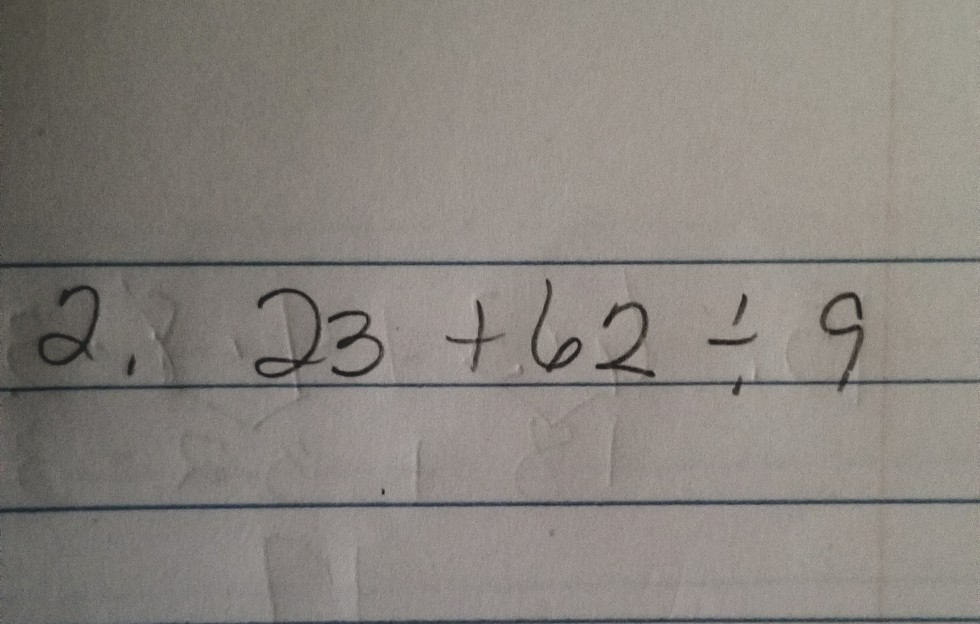 2. 23 + 62 ÷ 9